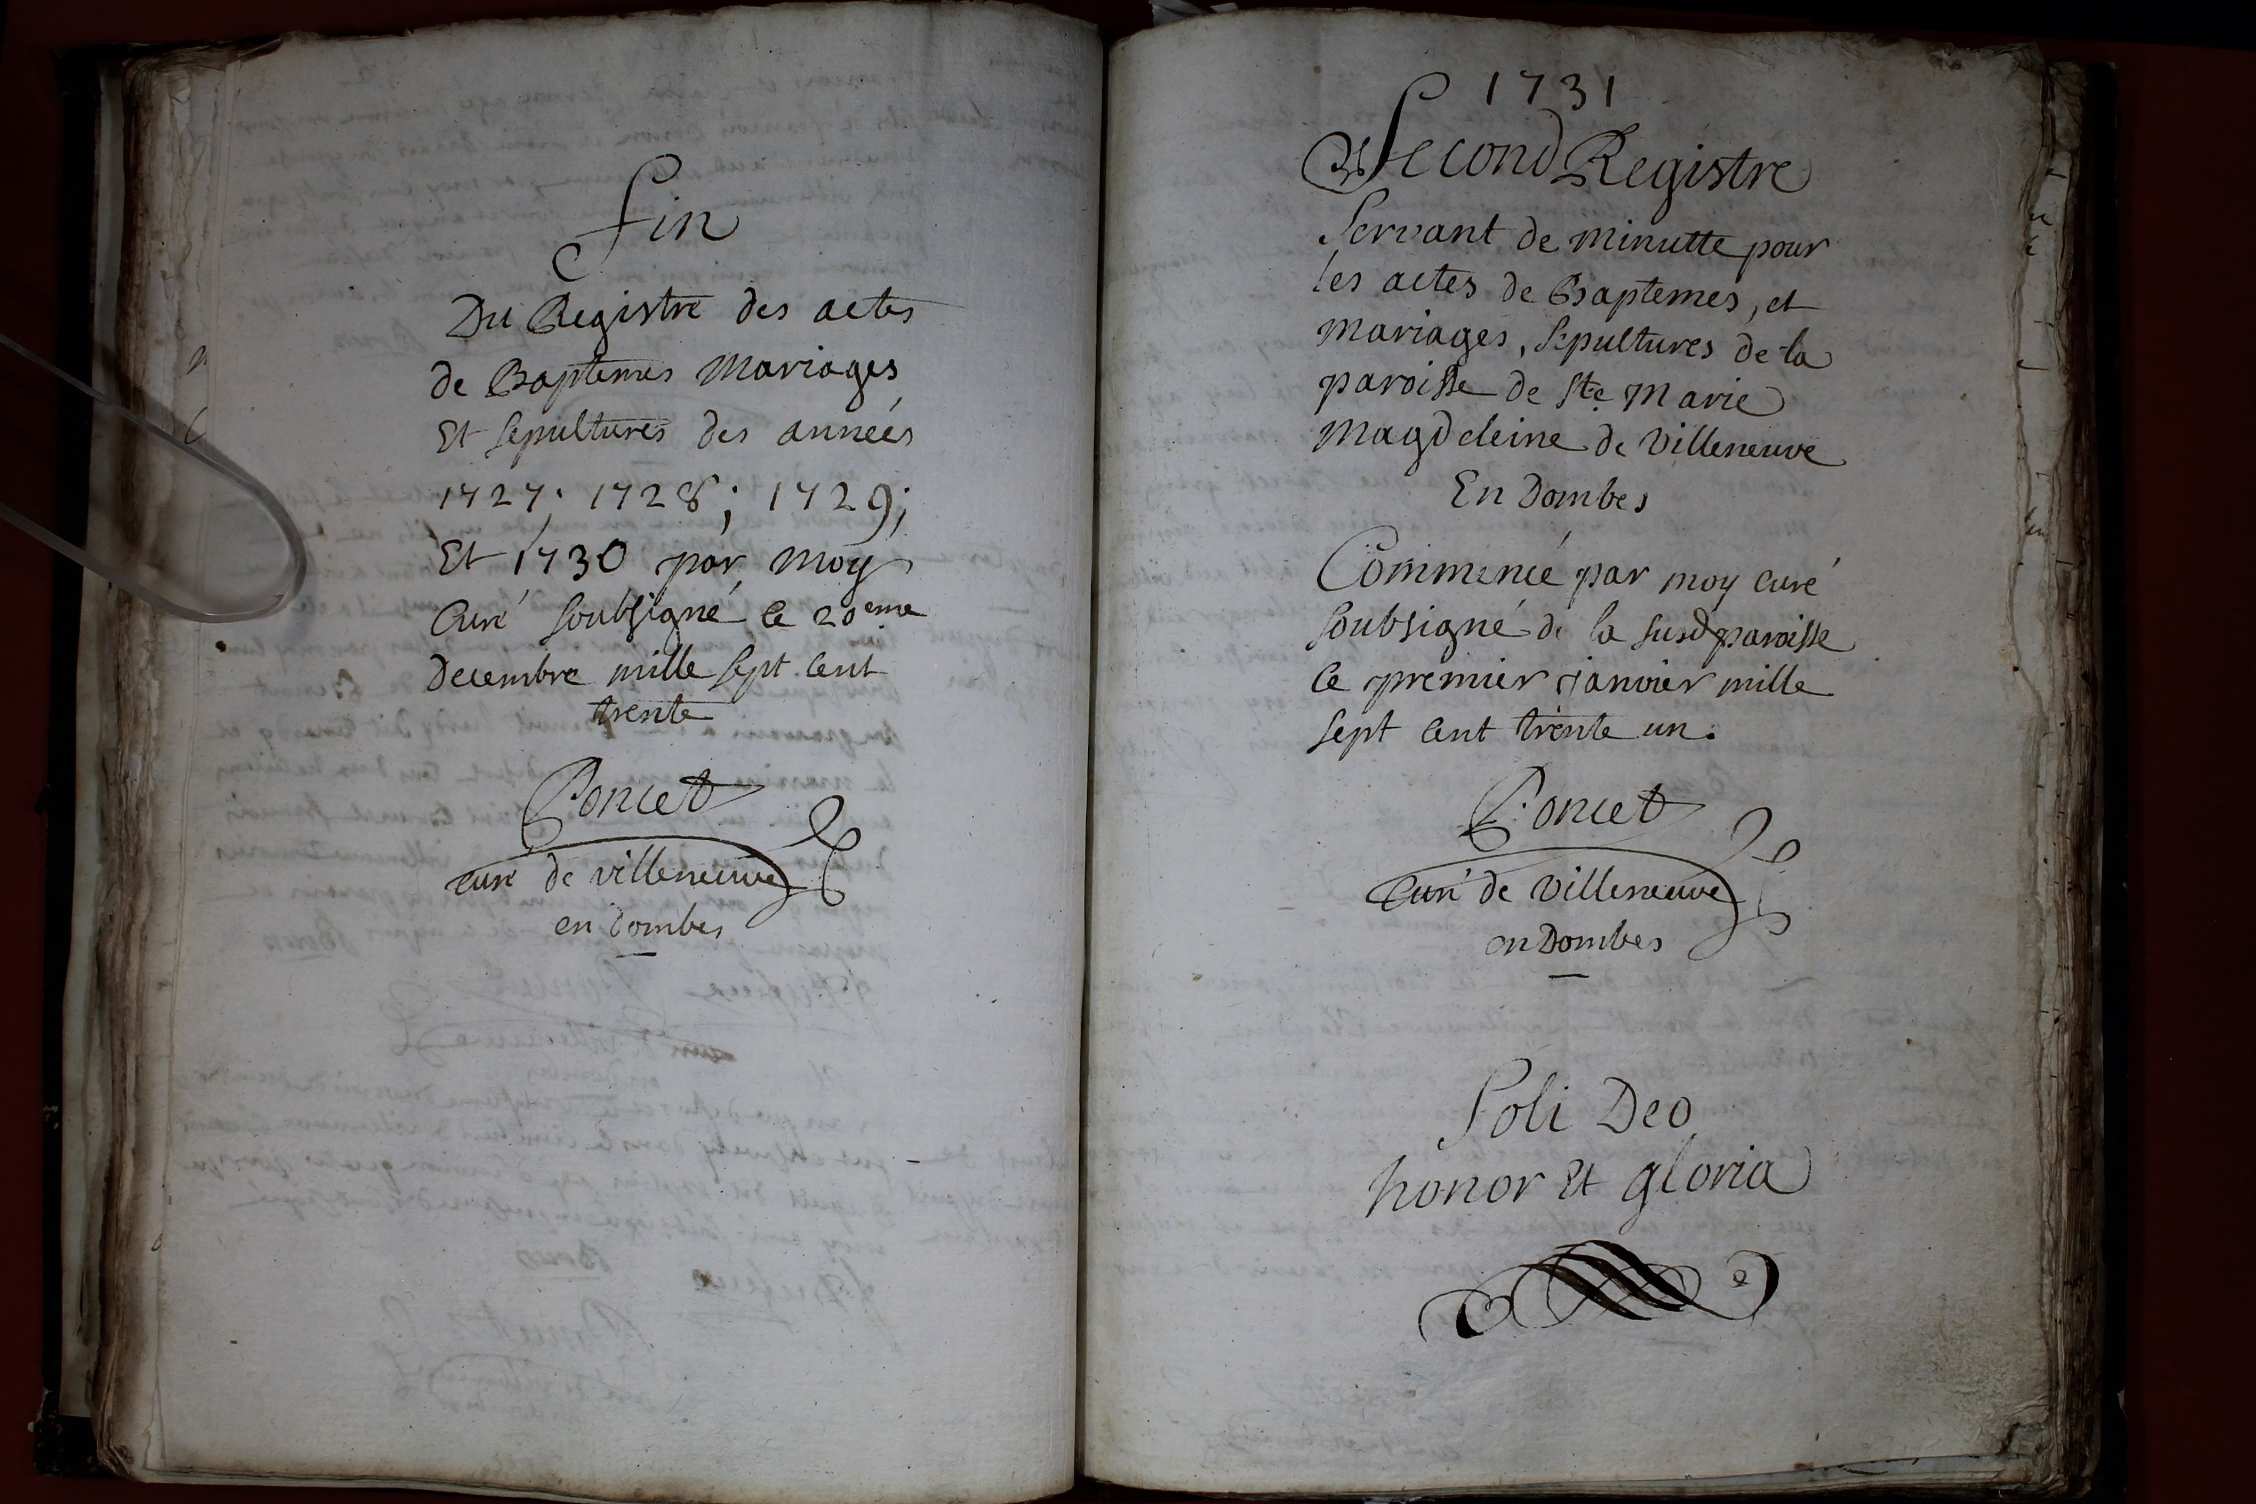 fin
Du Registre des actes
de Baptemes Mariages
Et sepultures des années
1727; 1728; 1729;
Et 1730 par moy
Curé soubsigné le 20eme
Decembre mille sept cent
trente
Poncet
curé de villeneuve
en Dombes
1731
Second Registre
servant de minutte pour
les actes de Baptemes, et
mariages, sepultures de la
paroisse de Ste Marie
Magdeleine de Villeneuve
En Dombes
Commencé par moy curé
soubsigné de la susd paroisse
le premier janvier mille
sept cent trente un.
Poncet
Curé de Villeneuve
en Dombes
Soli Deo
honor Et gloria